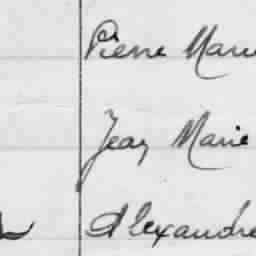 Pierre Marie
Jean Marie
Alexandre